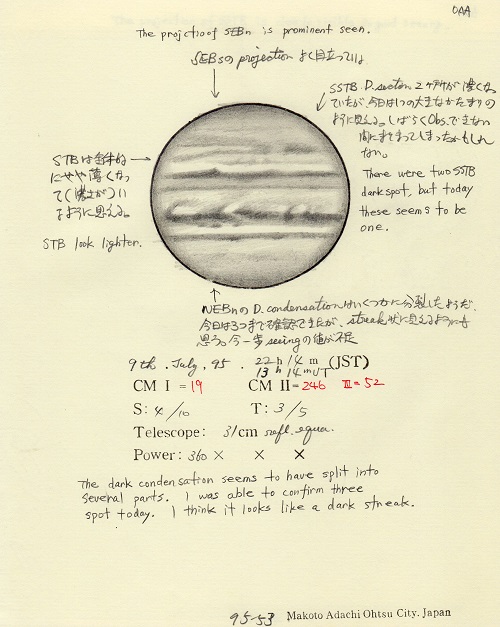 OAA
The projctioof SEBn is prominent seen.
SEBsの projection よく目立っている
SSTB D. section 2ヶ所が濃くなっ
ていたが、今日は1つの大きなかたまりの
ように見える。しばらくObs.できない
間にまとまってしまったかもしれ
ない。
There were two SSTB
dark spot, but today
these seems to be
one.
STBは全体的
にやや薄くなっ
て(濃さが)い
るように見える。
STB look lighter.
NEBnのD. condensationはいくつかに分裂したようだ。
今日は3つまで確認できたが、streak状に見えるように
思う。今一歩seeingの値が不足
9th. July. 95. 22h 14m (JST)
13h 14m UT
CM I = 19 CM II = 246 III = 52
S: 4/10 T: 3/5
Telescope: 31cm refl. equa.
Power: 360 × × ×
The dark condensation seems to have split into
several parts. I was able to confirm three
spot today. I think it looks like a dark streak.
95-53 Makoto Adachi Ohtsu City. Japan